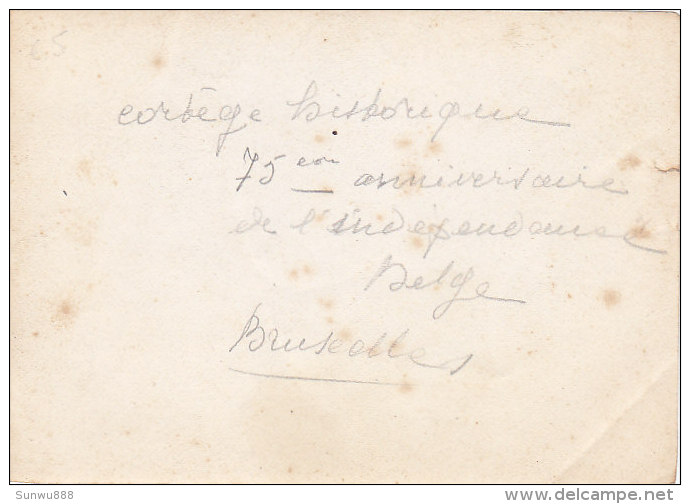 65
cortège historique
75 ème anniversaire
de l'indépendance
Belge
Bruxelles
Sunwu888
www.delcampe.net